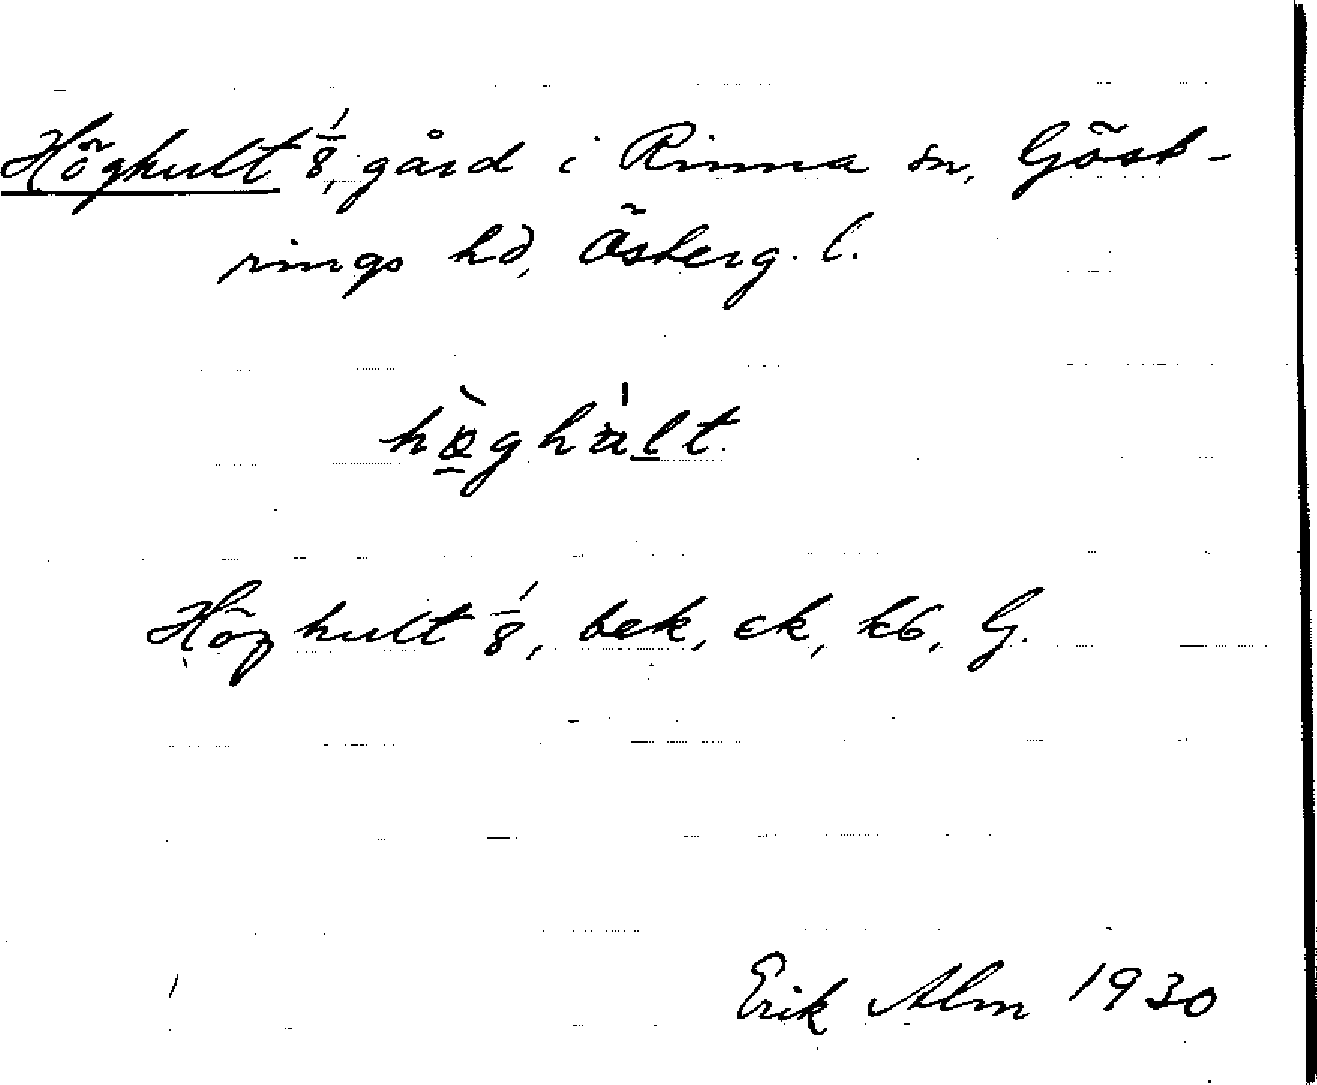 Höghult 1/8, gård i Rinna sn, Göst-
rings hd, Österg. l.
Höghult 1/8, bek, ek, kb, G.
Erik Alm 1930